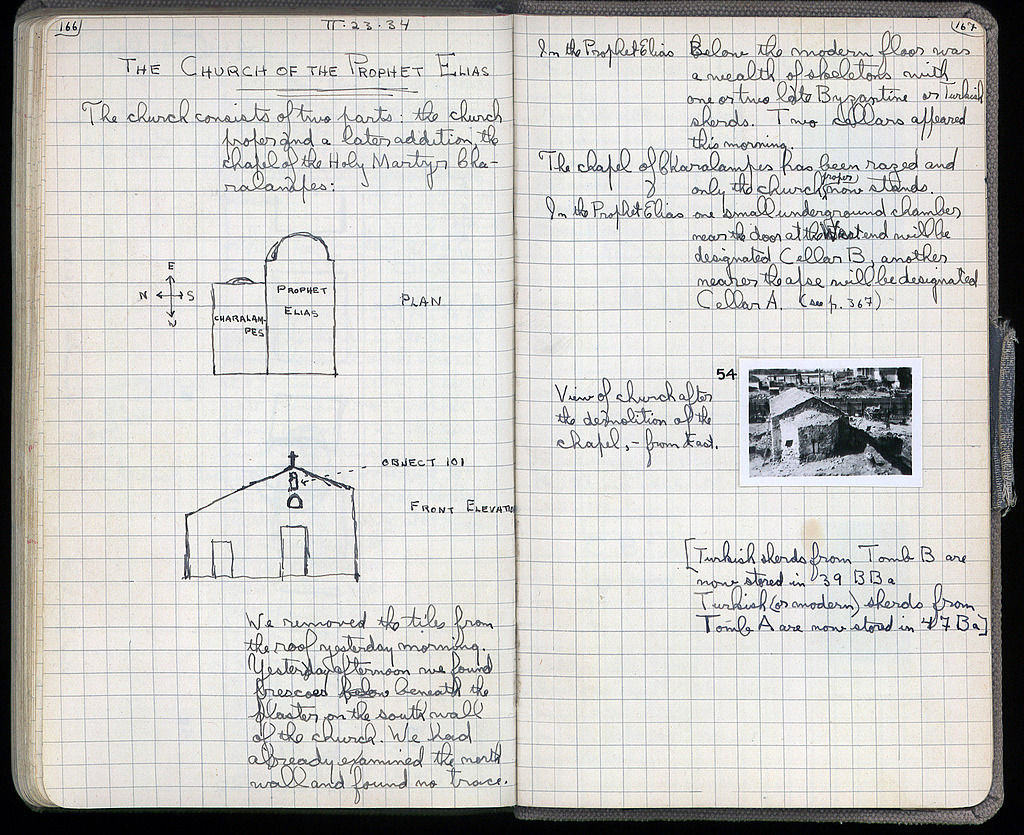 166
II·23·34
THE CHURCH OF THE PROPHET ELIAS
The church consists of two parts: the church
proper and a later addition, the
chapel of the Holy Martyr Cha-
ralampes:
E
N S
W
CHARALAM-
PES
PROPHET
ELIAS
PLAN
OBJECT 101
FRONT ELEVATION
We removed the tiles from
the roof yesterday morning.
Yesterday afternoon we found
frescoes below beneath the
plaster on the south wall
of the church. We had
already examined the north
wall and found no trace.
167
In the Prophet Elias Below the modern floor was
a wealth of skeletons with
one or two late Byzantine or Turkish
sherds. Two cellars appeared
this morning.
The chapel of Charalampes has been razed and
only the church proper now stands.
In the Prophet Elias one small underground chamber
near the door at the West end will be
designated Cellar B, another
nearer the apse will be designated
Cellar A. (see p. 367)
54
View of church after
the demolition of the
chapel, - from East.
[Turkish sherds from Tomb B are
now stored in 39 BBa
Turkish (or modern) sherds from
Tomb A are now stored in 47 Ba]